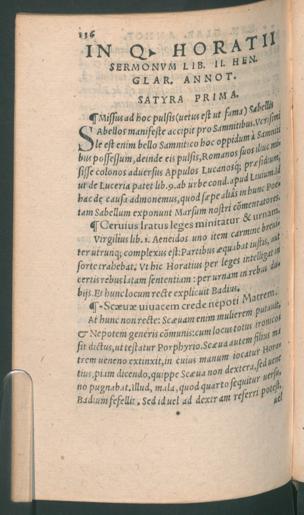 136
IN Q. HORATII
SERMONVM LIB. II. HEN.
GLAR. ANNOT.
SATYRA PRIMA.
¶ Missus ad hoc pulsis (uetus est ut fama) Sabellis
Sabellos manifeste accipit pro Samnitibus. Verisimi
le est enim bello Samnitico hoc oppidum à Samniti
bus possessum, deinde eis pulsis, Romanos suos illuc mi
sisse colonos aduersus Appulos Lucanosq; præsidium,
ut de Luceria patet lib. 9. ab urbe cond. apud Liuium. Id
hac de causa admonemus, quod sæpe aliâs in hunc Poe
tam Sabellum exponunt Marsum nostri cõmentatores.
¶ Ceruius iratus leges minitatur & urnam.
Virgilius lib. 1. Aeneidos uno item carmine breui
ter utrunq; complexus est: Partibus æquabat iustis, aut
sorte trahebat. Vt hic Horatius per leges intelligat in
certis rebus latam sententiam: per urnam in rebus du
bijs. Et hunc locum recte explicuit Badius.
¶ Scæuæ uiuacem crede nepoti Matrem.
At hunc non recte: Scæuam enim mulierem putauit,
& Nepotem generis cõmunis: cum locus totus ironicos
sit dictus, ut testatur Porphyrio. Scæua autem filius ma
trem ueneno extinxit, in cuius manum iocatur Hora
tius, piam dicendo, quippe Scæua non dextera, sed uene
no pugnabat. illud, mala, quod quarto sequitur uersu,
Badium fefellit. Sed id uel ad dextram referri potest,
uel